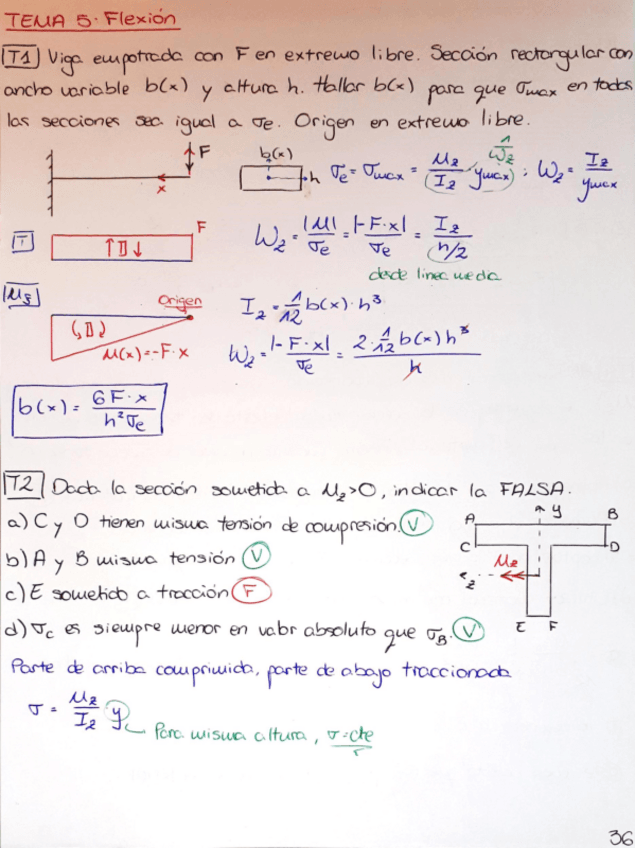 TEMA 5. Flexión
T1 Viga empotrada con F en extremo libre. Sección rectangular con
ancho variable b(x) y altura h. Hallar b(x) para que σmax en todas
las secciones sea igual a σe. Origen en extremo libre.
F
x
b(x)
h
σe = σmax = Mz/Iz ymax ; Wz = Iz/ymax
1/Wz
T
F
Wz = |M|/σe = |-F·x|/σe = Iz/(h/2)
desde línea media
Mz
Origen
M(x)=-F·x
Iz = 1/12 b(x)·h³
Wz = |-F·x|/σe = 2·1/12 b(x)h³/h
b(x) = 6F·x/h²σe
T2 Dada la sección sometida a Mz>0, indicar la FALSA.
a) C y D tienen misma tensión de compresión. V
b) A y B misma tensión V
c) E sometido a tracción F
d) σc es siempre menor en valor absoluto que σB. V
A B
C D
E F
y
z
Mz
Parte de arriba comprimida, parte de abajo traccionada
σ = Mz/Iz y
Para misma altura, σ=cte
36